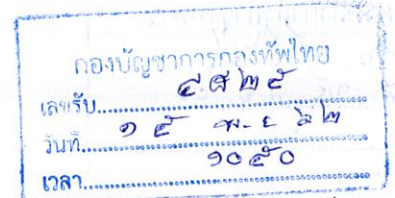 กองบัญชาการกองทัพไทย
เลขรับ
วันที่ ๑ ๕ พ.ย. ๖๒
เวลา ๑๐๕๐